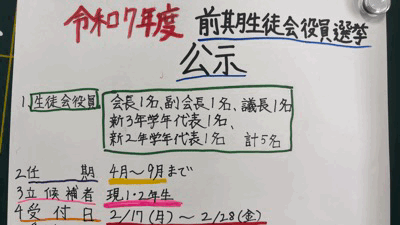 令和7年度 前期生徒会役員選挙
公示
1.生徒会役員 会長1名、副会長1名、議長1名
新3年学年代表1名、
新2年学年代表1名 計5名
2任期 4月～9月まで
3立候補者 現1・2年生
4受付日 2/17(月)～2/28(金)